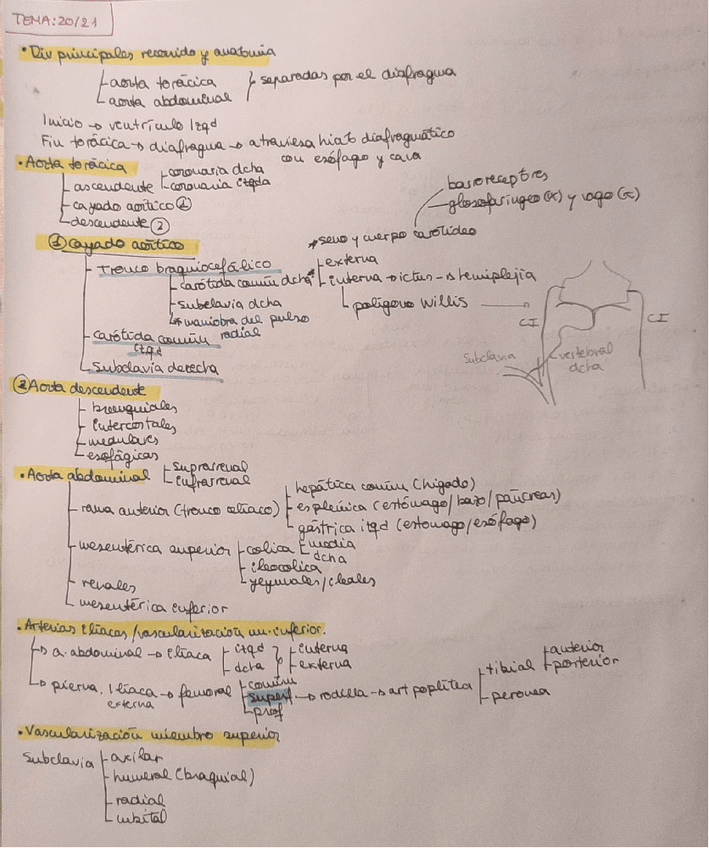 TEMA: 20/21
• Div principales recorrido y anatomía
aorta torácica
aorta abdominal
separadas por el diafragma
Inicio → ventrículo Izqd
Fin torácica → diafragma → atraviesa hiato diafragmático
con esófago y cava
• Aorta torácica
ascendente
coronaria dcha
coronaria izqda
cayado aórtico ①
descendente ②
barorreceptores
glosofaríngeo (IX) y vago (X)
* seno y cuerpo carotídeo
① Cayado aórtico
Tronco braquiocefálico
carótida común dcha *
externa
interna → ictus → hemiplejia
polígono Willis
subclavia dcha
maniobra del pulso
radial
carótida común
izqd
Subclavia derecha
CI
CI
Subclavia
vertebral
dcha
② Aorta descendente
bronquiales
intercostales
medulares
esofágicas
• Aorta abdominal
suprarrenal
infrarrenal
rama anterior (tronco celíaco)
hepática común (hígado)
esplénica (estómago/bazo/páncreas)
gástrica izqd (estómago/esófago)
mesentérica superior
colica
media
dcha
ileocolica
yeyunales/ileales
renales
mesentérica inferior
• Arterias ilíacas /vascularización m. inferior.
→ a. abdominal → ilíaca
izqd
dcha
interna
externa
→ pierna. Ilíaca → femoral
externa
común
superf → rodilla → art poplítea
prof
tibial
anterior
posterior
peronea
• Vascularización miembro superior
Subclavia
axilar
humeral (braquial)
radial
cubital